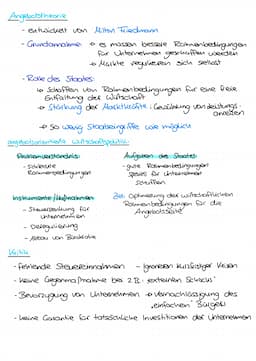 Angebotstheorie
- entwickelt von Milton Friedmann
- Grundannahme → es müssen bessere Rahmenbedingungen
für Unternehmen geschaffen werden
→ Märkte regulieren sich selbst
- Rolle des Staates:
→ Schaffen von Rahmenbedingungen für eine freie
Entfaltung der Wirtschaft
→ Stärkung der Marktkräfte; Gewährung von Leistungs-
anreizen
→ So wenig Staatseingriffe wie möglich
angebotsorientierte Wirtschaftspolitik:
- schlechte
Rahmenbedingungen
Aufgaben des Staates
- gute Rahmenbedingungen
speziell für Unternehmen
schaffen
Instrumente/Maßnahmen
- Steuersenkung für
Unternehmen
- Deregulierung
- Abbau von Bürokratie
Ziel: Optimierung der wirtschaftlichen
Rahmenbedingungen für die
Angebotsseite
Kritik
- Fehlende Steuereinnahmen
- Ignorieren kurzfristiger Krisen
- keine Gegenmaßnahme bei z.B. externen Schocks
- Bevorzugung von Unternehmen → Vernachlässigung des
„einfachen" Bürgers
- keine Garantie für tatsächliche Investitionen der Unternehmen